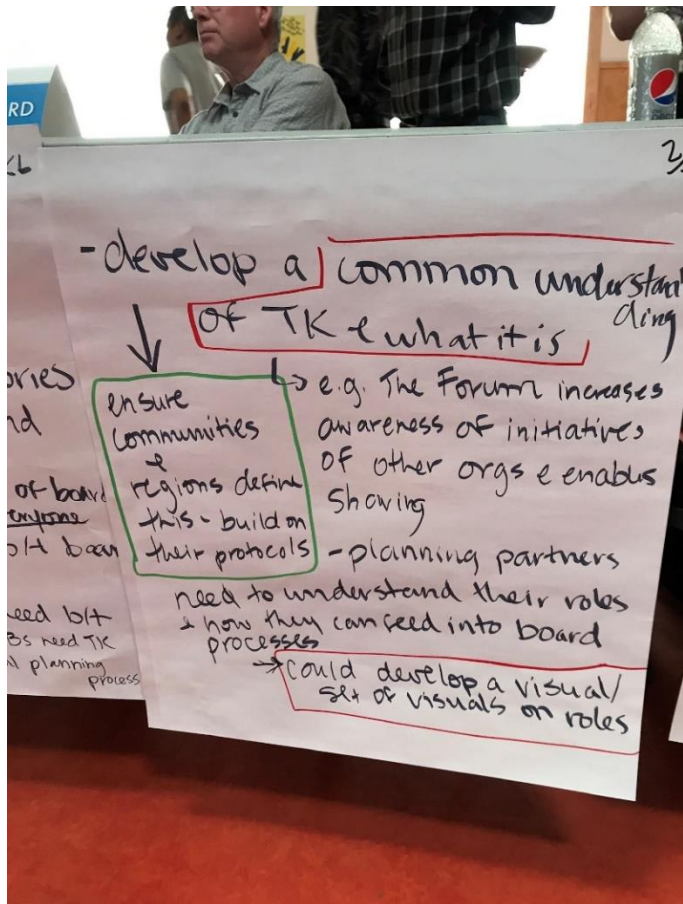 RD
- develop a common understan
ding
of TK & what it is
ensure
communities
&
regions define
this - build on
their protocols
e.g. The Forum increases
awareness of initiatives
of other orgs & enables
sharing
- planning partners
need to understand their roles
& how they can feed into board
processes
could develop a visual/
set of visuals on roles
ories
nd
of board
anyone
b/t boar
need b/t
Bs need TK
l planning
process